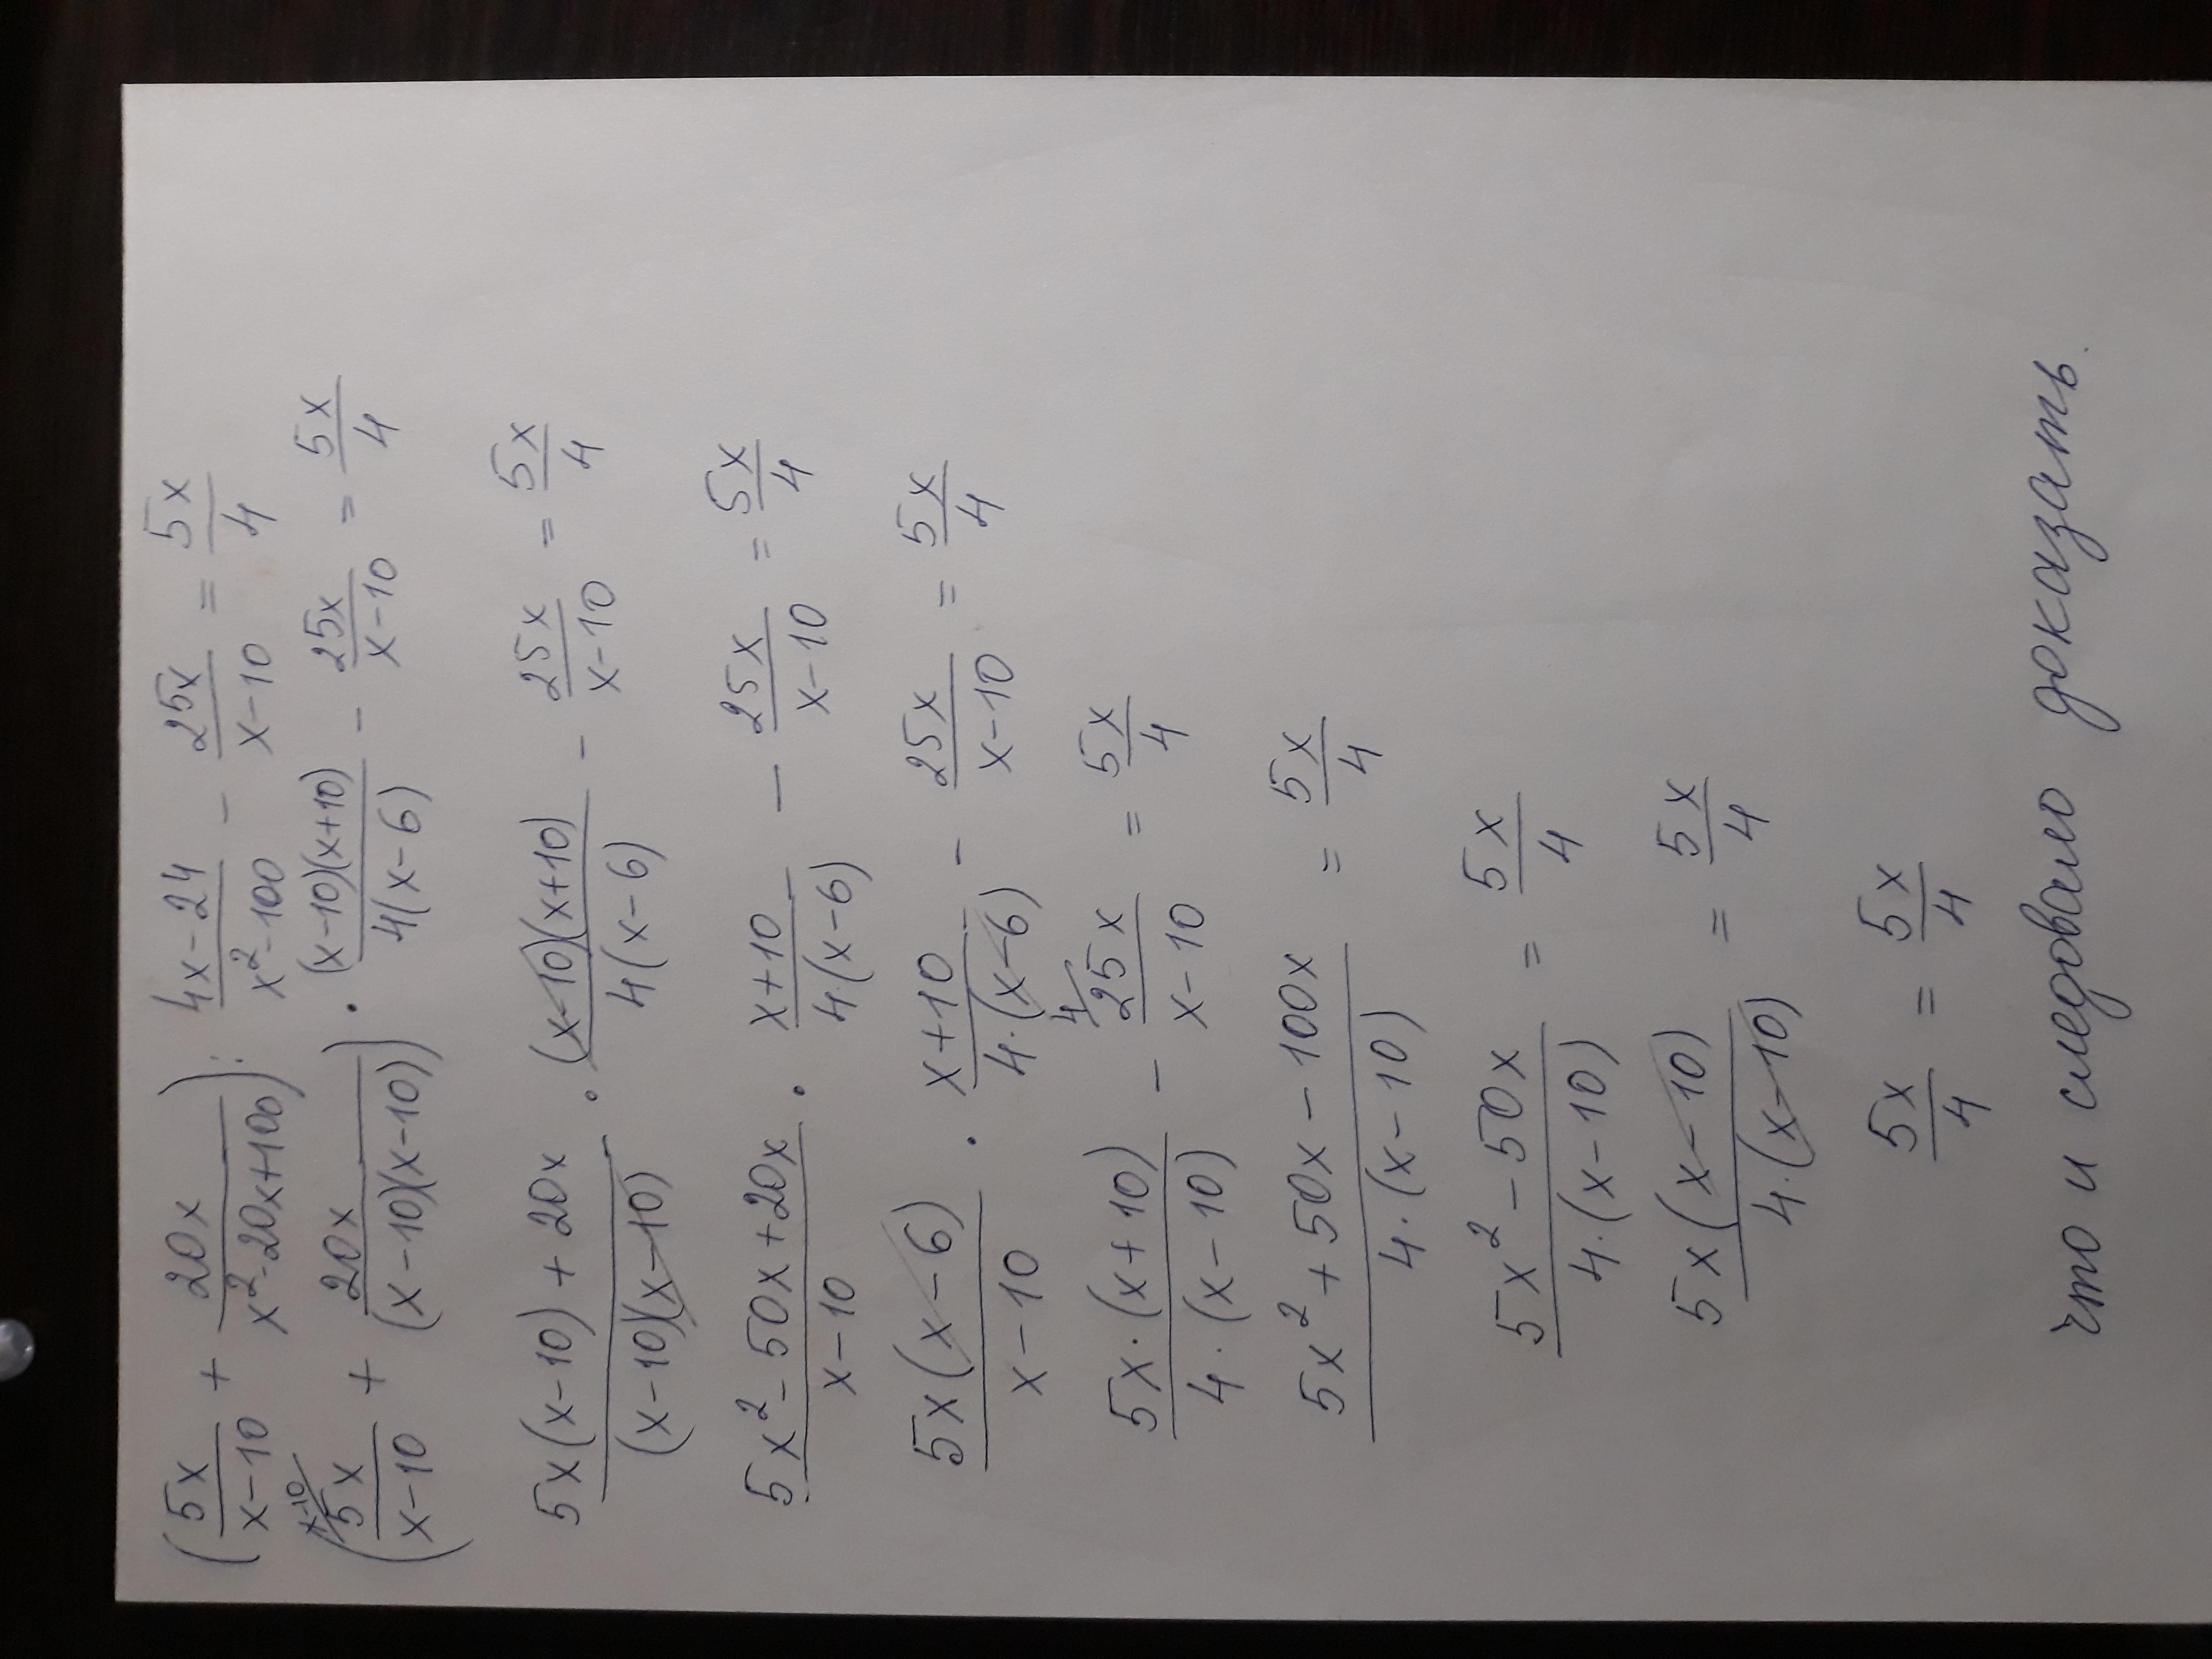 (5x/(x-10) + 20x/(x²-20x+100)) : (4x-24)/(x²-100) - 25x/(x-10) = 5x/4
(x-10/ 5x/(x-10) + 20x/((x-10)(x-10))) · ((x-10)(x+10))/(4(x-6)) - 25x/(x-10) = 5x/4
(5x(x-10)+20x)/((x-10)(x-10)) · ((x-10)(x+10))/(4(x-6)) - 25x/(x-10) = 5x/4
(5x²-50x+20x)/(x-10) · (x+10)/(4·(x-6)) - 25x/(x-10) = 5x/4
(5x(x-6))/(x-10) · (x+10)/(4·(x-6)) - 25x/(x-10) = 5x/4
(5x·(x+10))/(4·(x-10)) - 4/ 25x/(x-10) = 5x/4
(5x²+50x-100x)/(4·(x-10)) = 5x/4
(5x²-50x)/(4·(x-10)) = 5x/4
(5x(x-10))/(4·(x-10)) = 5x/4
5x/4 = 5x/4
что и следовало доказать.